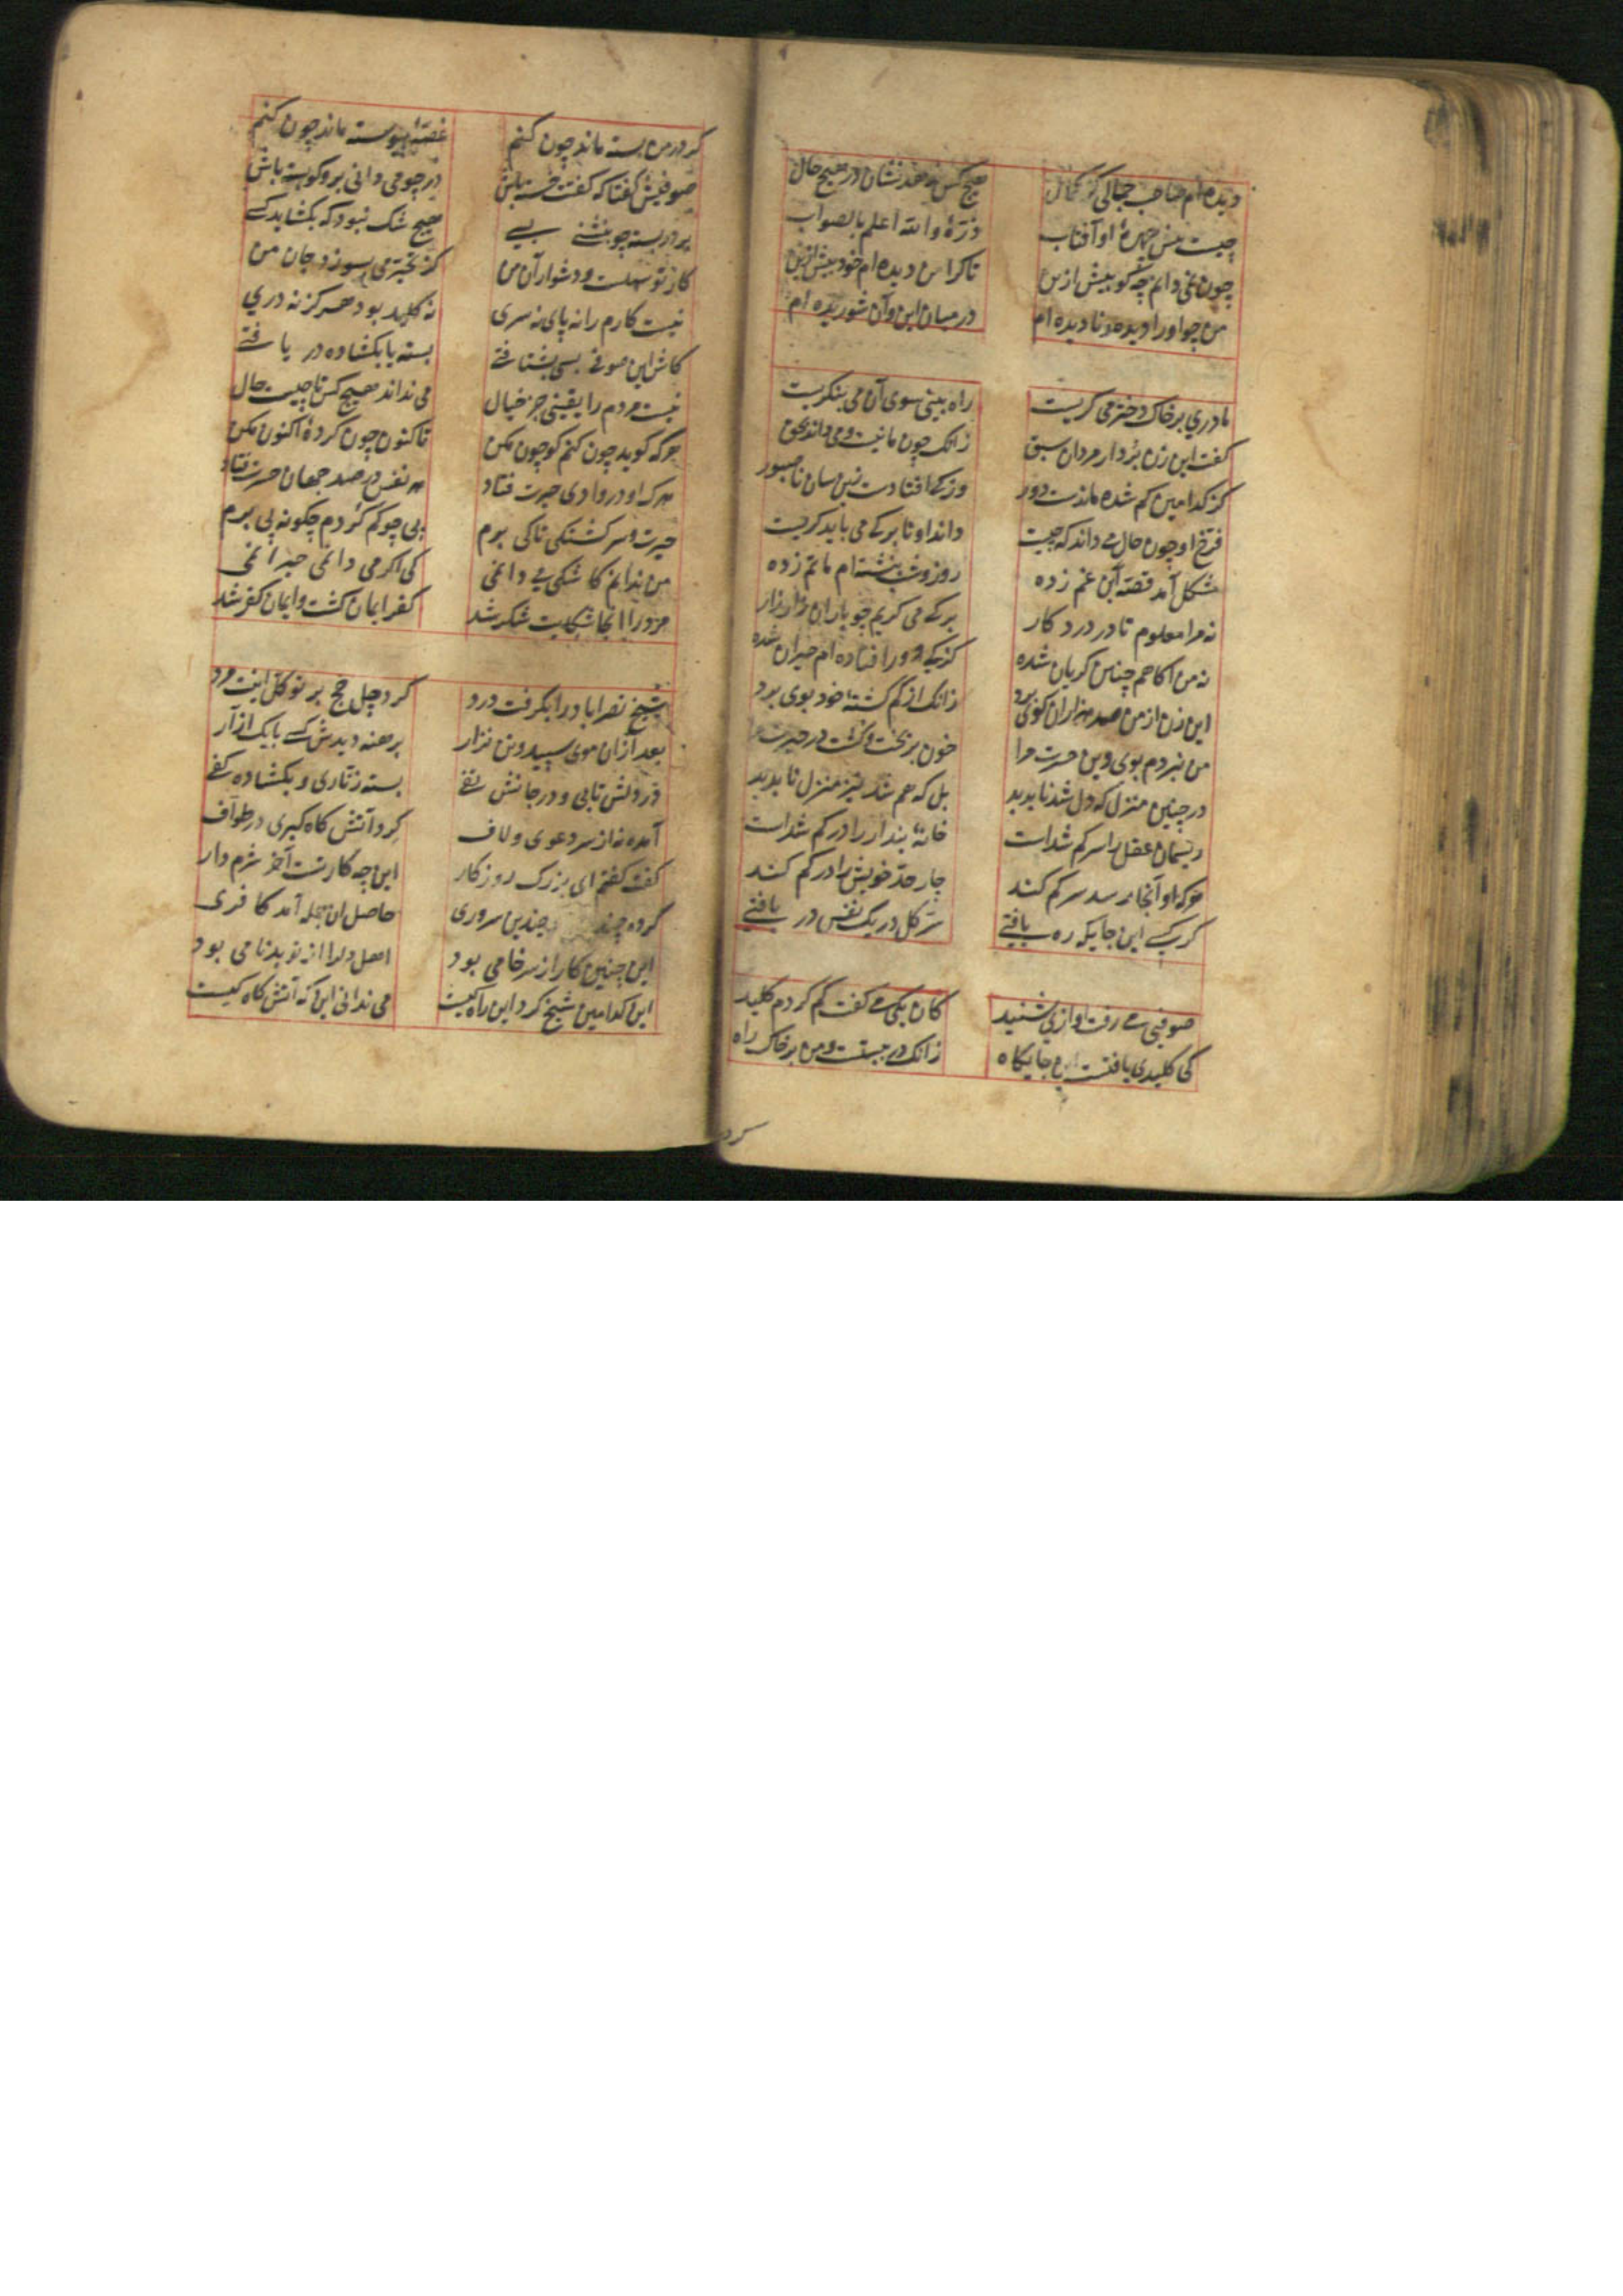 دیده‌ام صاحب جمالی کز کمال هیچ کس ندهد نشان در هیچ حال
چیست پیش چهرهٔ او آفتاب ذرّهٔ والله اعلم بالصواب
چون نمی دانم چه گویم بیش ازین تا کرا من دیده ام خود پیش ازین
من چو او را دیده و نادیده ام در میان این و آن شوریده ام
مادری بر خاک دختر می گریست راه بینی سوی آن می بنگریست
گفت این زن برد از مردان سبق زانک چون ما نیست و می داند بحق
کز کدامین گم شده ماندست دور وز که افتادست زین سان ناصبور
فرخ او چون حال می داند که چیست داند او تا بر که می باید گریست
مشکل آمد قصه این غم زده روز و شب بنشسته ام ماتم زده
نه مرا معلوم تا در درد کار بر که می گریم چو باران زار زار
نه من آگاهم چنین گریان شده کز که دور افتاده ام حیران شده
این زن از من صد هزاران گوی برد زانک از گم گشته خود بوی برد
من نبردم بوی و این حسرت مرا خون بریخت و کشت در حیرت مرا
در چنین منزل که دل شد ناپدید بل که هم شد نیز منزل ناپدید
ریسمان عقل را سر گم شدست خانهٔ پندار را در گم شدست
هر که او آنجا رسد سر گم کند چار حد خویش را در گم کند
گر کسی این جایگه ره یافتی سرّ کل در یک نفس دریافتی
صوفیی می رفت آوازی شنید کان یکی می گفت گم کردم کلید
کی کلیدی یافتست این جایگاه زانک در بستست و من بر خاک راه
کرد
گر در من بسته ماند چون کنم غصهٔ پیوسته ماند چون کنم
صوفیش گفتا که گفتت خسته باش در چو می دانی برو گو بسته باش
بر در بسته چو بنشینی بسی هیچ شک نبود که بگشاید کسی
کار تو سهلست و دشوار آن من کز تحیر می بسوزد جان من
نیست کارم را نه پای نه سری نه کلیدم بود هرگز نه دری
کاش این صوفی بسی بشتافتی بسته یا بگشاده در یافتی
نیست مردم را یقینی جز خیال می نداند هیچ کس تا چیست حال
هر که گوید چون کنم گو چون مکن تا کنون چون کردهٔ اکنون مکن
هر که او در وادی حیرت فتاد هر نفس در صد جهان حسرت فتاد
حیرت و سرگشتگی تا کی برم پی چو گم کردم چگونه پی برم
من ندانم کاشکی می دانمی کی اگر می دانمی حیرانمی
مرد را اینجا شکایت شکر شد کفر ایمان گشت و ایمان کفر شد
شیخ نصراباد را بگرفت درد کرد چل حج بر توکل اینت مرد
بعد از آن موی سپید و تن نزار برهنه دیدش کسی با یک ازار
در دلش تابی و در جانش تفی بسته زناری و بگشاده کفی
آمده نه از سر دعوی و لاف گرد آتش گاه گبری در طواف
گفت گفتم ای بزرگ روزگار این چه کار تست آخر شرم دار
کرده چندین سروری حاصل آن جمله آمد کافری
این چنین کار از سر خامی بود اهل دل را از تو بدنامی بود
این کدامین شیخ کرد این راه کیست می ندانی این که آتش گاه کیست